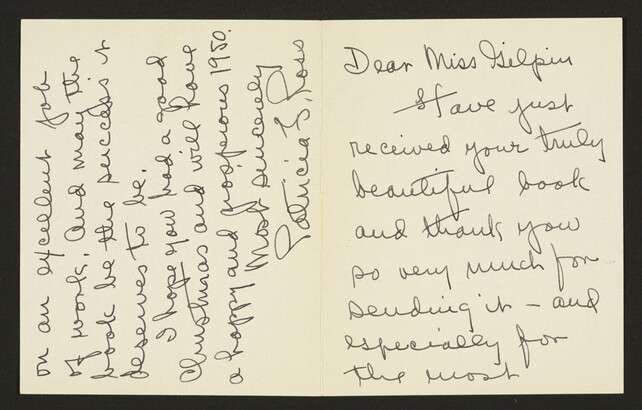 Dear Miss Gilpin
I have just
received your truly
beautiful book
and thank you
so very much for
sending it – and
especially for
the most
on an excellent job
of work. And may the
book be the success it
deserves to be.
I hope you had a good
Christmas and will have
a happy and prosperous 1950.
Most sincerely
Patricia F. Ross